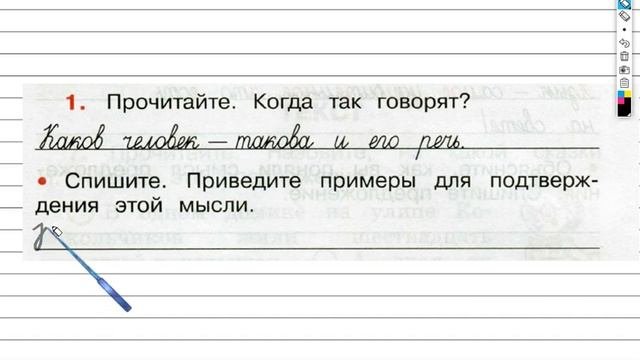 1. Прочитайте. Когда так говорят?
Каков человек – такова и его речь.
• Спишите. Приведите примеры для подтверж-
дения этой мысли.